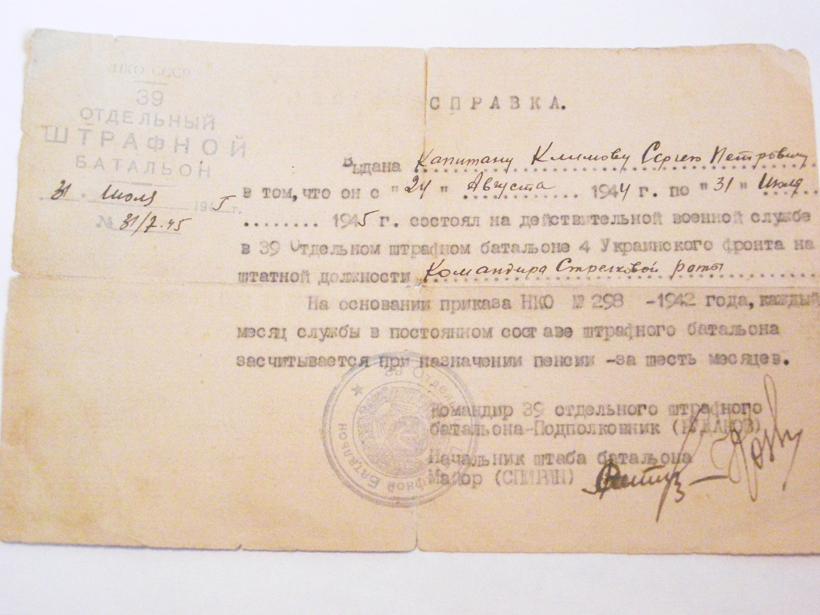 НКО СССР
39
ОТДЕЛЬНЫЙ
ШТРАФНОЙ
БАТАЛЬОН
31 . Июля 1945 г.
№ 31/7.45
СПРАВКА.
Выдана Капитану Климову Сергею Петровичу
в том, что он с "24" Августа 1944 г. по "31" Июля
........ 1945 г. состоял на действительной военной службе
в 39 Отдельном штрафном батальоне 4 Украинского фронта на
штатной должности Командира Стрелковой роты
На основании приказа НКО № 298 -1942 года, каждый
месяц службы в постоянном составе штрафного батальона
засчитывается при назначении пенсии -за шесть месяцев.
Командир 39 отдельного штрафного
батальона-Подполковник
Начальник штаба батальона
Майор
39 Отдельн
Штрафной Батальон